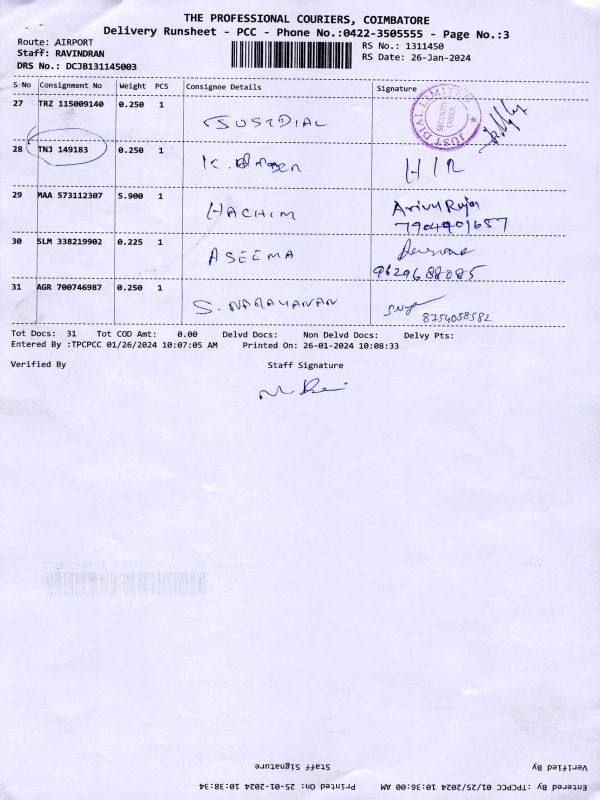 THE PROFESSIONAL COURIERS, COIMBATORE
Delivery Runsheet - PCC - Phone No.:0422-3505555 - Page No.:3
Route: AIRPORT
Staff: RAVINDRAN
DRS No.: DCJB131145003
RS No.: 1311450
RS Date: 26-Jan-2024
S No Consignment No Weight PCS Consignee Details Signature
27 TRZ 115009140 0.250 1 JUSTDIAL
JUST DIAL LIMITED
SECURITY
CHECK
28 TNJ 149183 0.250 1 K. H/R
29 MAA 573112307 5.900 1 HACHIM
7904901657
30 SLM 338219902 0.225 1 ASEEMA
9629688085
31 AGR 700746987 0.250 1 S. NARAYANAN
8754058582
Tot Docs: 31 Tot COD Amt: 0.00 Delvd Docs: Non Delvd Docs: Delvy Pts:
Entered By :TPCPCC 01/26/2024 10:07:05 AM Printed On: 26-01-2024 10:08:33
Verified By Staff Signature
Verified By Staff Signature
Entered By :TPCPCC 01/25/2024 10:36:00 AM Printed On: 25-01-2024 10:38:34